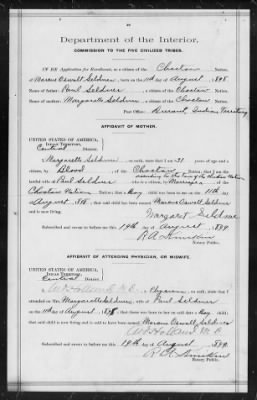 Department of the Interior,
COMMISSION TO THE FIVE CIVILIZED TRIBES.
IN RE Application for Enrollment, as a citizen of the Choctaw Nation,
of Marcus Oswell Seldner, born on the 11th day of August, 1898
Name of father: Paul Seldner a citizen of the Choctaw Nation.
Name of mother: Margarette Seldner a citizen of the Choctaw Nation.
Post-office: Durant, Indian Territory
AFFIDAVIT OF MOTHER.
UNITED STATES OF AMERICA,
INDIAN TERRITORY,
Central District.
I, Margarette Seldner, on oath, state that I am 31 years of age and a
citizen, by Blood, of the Choctaw Nation; that I am the
lawful wife of Paul Seldner, who is a citizen, by Marriage of the
Choctaw Nation; that a boy child was born to me on the 11th day
of August, 1898; that said child has been named Marcus Oswell Seldner
and is now living.
Margaret Seldner
Subscribed and sworn to before me this 19th day of August, 1899.
Notary Public.
AFFIDAVIT OF ATTENDING PHYSICIAN, OR MIDWIFE.
UNITED STATES OF AMERICA,
INDIAN TERRITORY,
Central District.
I, a Physician, on oath, state that I
attended on Mrs. Margarette Seldner, wife of Paul Seldner
on the 11th day of August, 1898; that there was born to her on said date a boy child;
that said child is now living and is said to have been named Marcus Oswell Seldner
M. D.
Subscribed and sworn to before me this 19th day of August, 1899.
Notary Public.